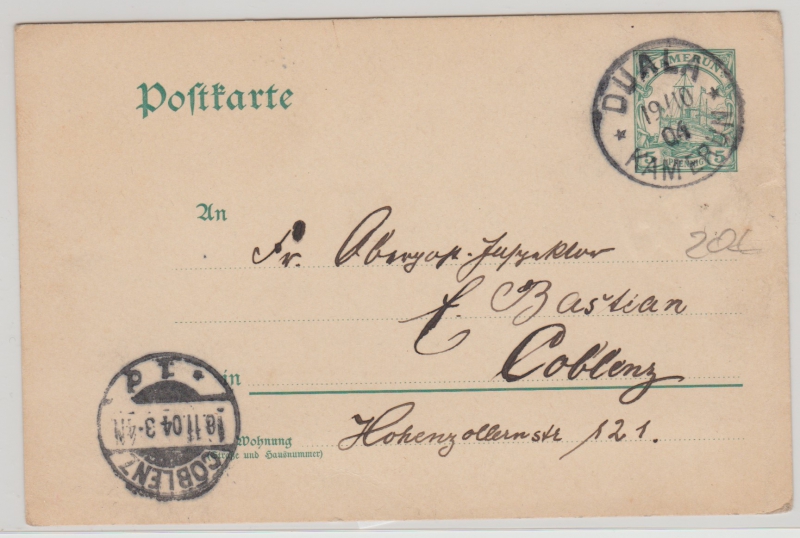 Postkarte
KAMERUN
5 PFENNIG 5
DUALA
19/10
04
KAMERUN
An
Fr. Oberpost-Inspektor
E. Bastian
in Coblenz
Wohnung
(Straße und Hausnummer)
Hohenzollernstr 121.
COBLENZ
11.04 3-4N
20€